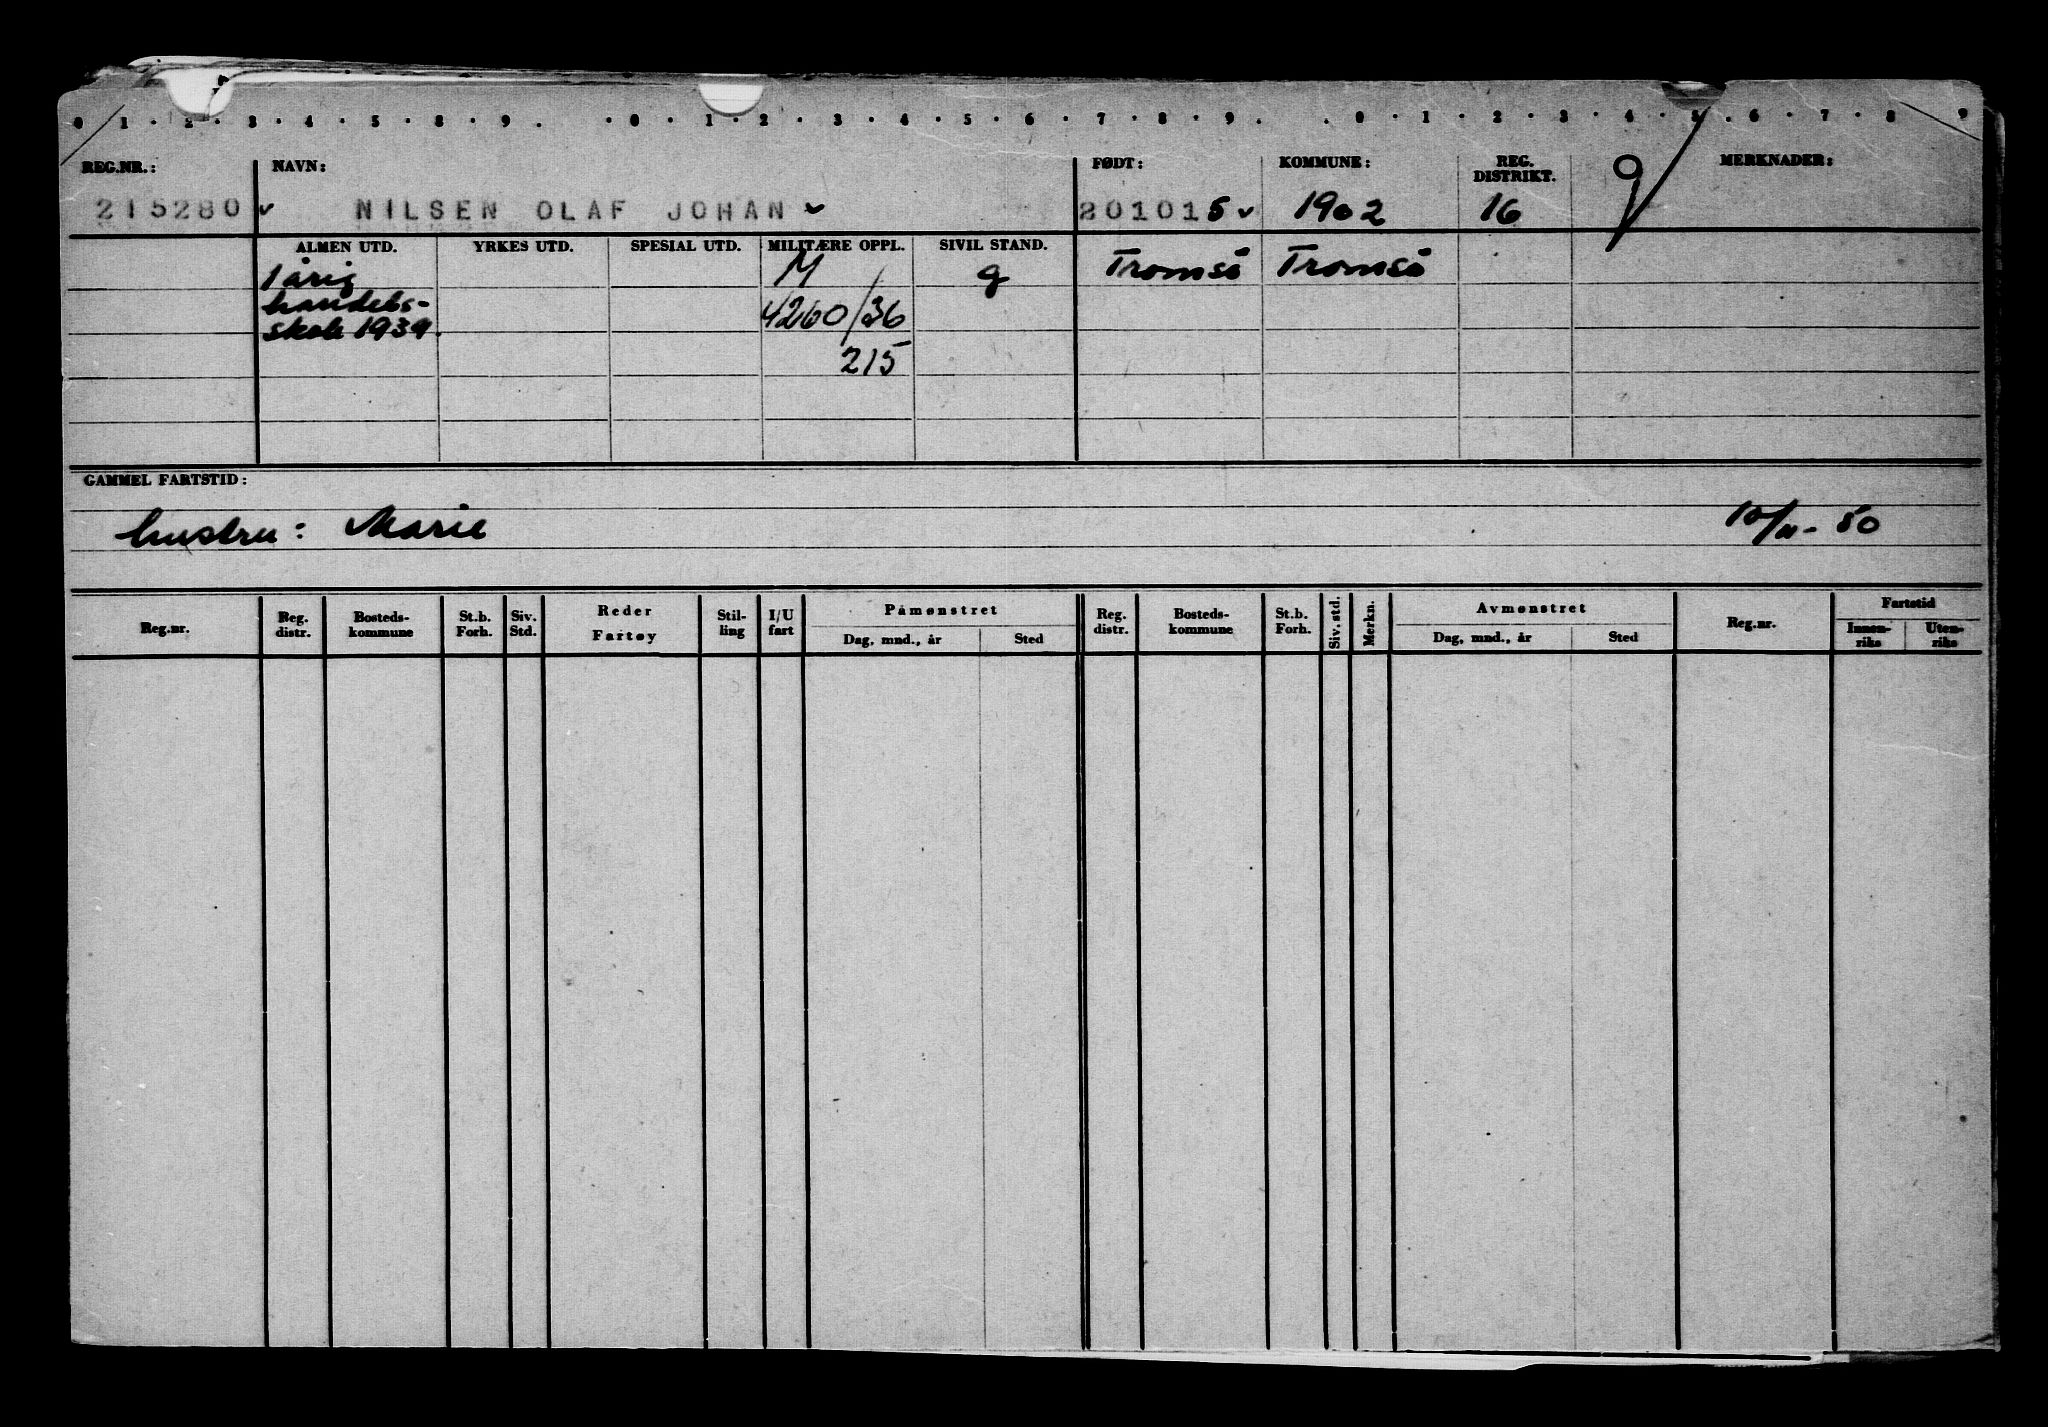 0 1 . 2 . 3 . 4 . 5 . 8 . 9 . . 0 . 1 . 2 . 3 . 4 . 5 . 6 . 7 . 8 . 9 . . 0 . 1 . 2 . 3 . 4 . 5 . 6 . 7 . 8 . 9
REG.NR.: NAVN: FØDT: KOMMUNE: REG. DISTRIKT. MERKNADER:
215280 NILSEN OLAF JOHAN 201015 1902 16 g
ALMEN UTD. YRKES UTD. SPESIAL UTD. MILITÆRE OPPL. SIVIL STAND.
1 årig M g Tromsö Tromsö
handels-
skole 1939. 4260/36
215
GAMMEL FARTSTID:
hustru: Marie 50
Reg.nr. Reg. distr. Bosteds-kommune St.b. Forh. Siv. Std. Reder Fartøy Stil-ling I/U fart Påmønstret Reg. distr. Bosteds-kommune St.b. Forh. Siv. std. Merkn. Avmønstret Reg.nr. Fartstid
Dag, mnd., år Sted Dag, mnd., år Sted Innen-riks Uten-riks